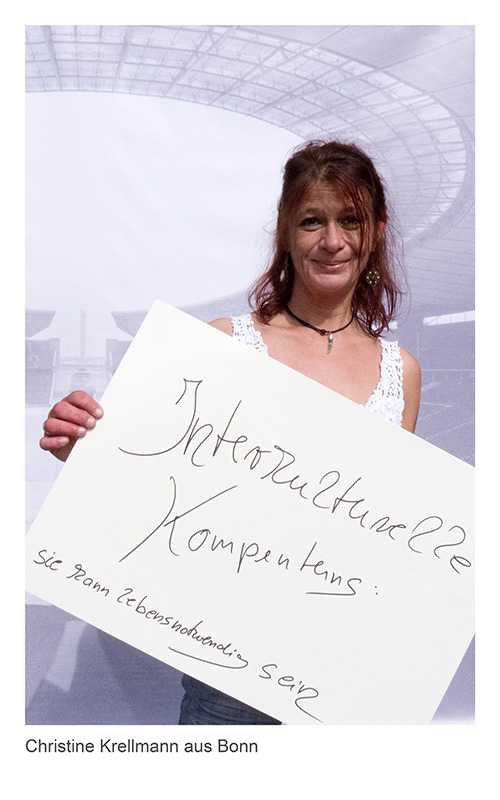 Interkulturelle
Kompentens:
sie kann lebensnotwendig sein
Christine Krellmann aus Bonn